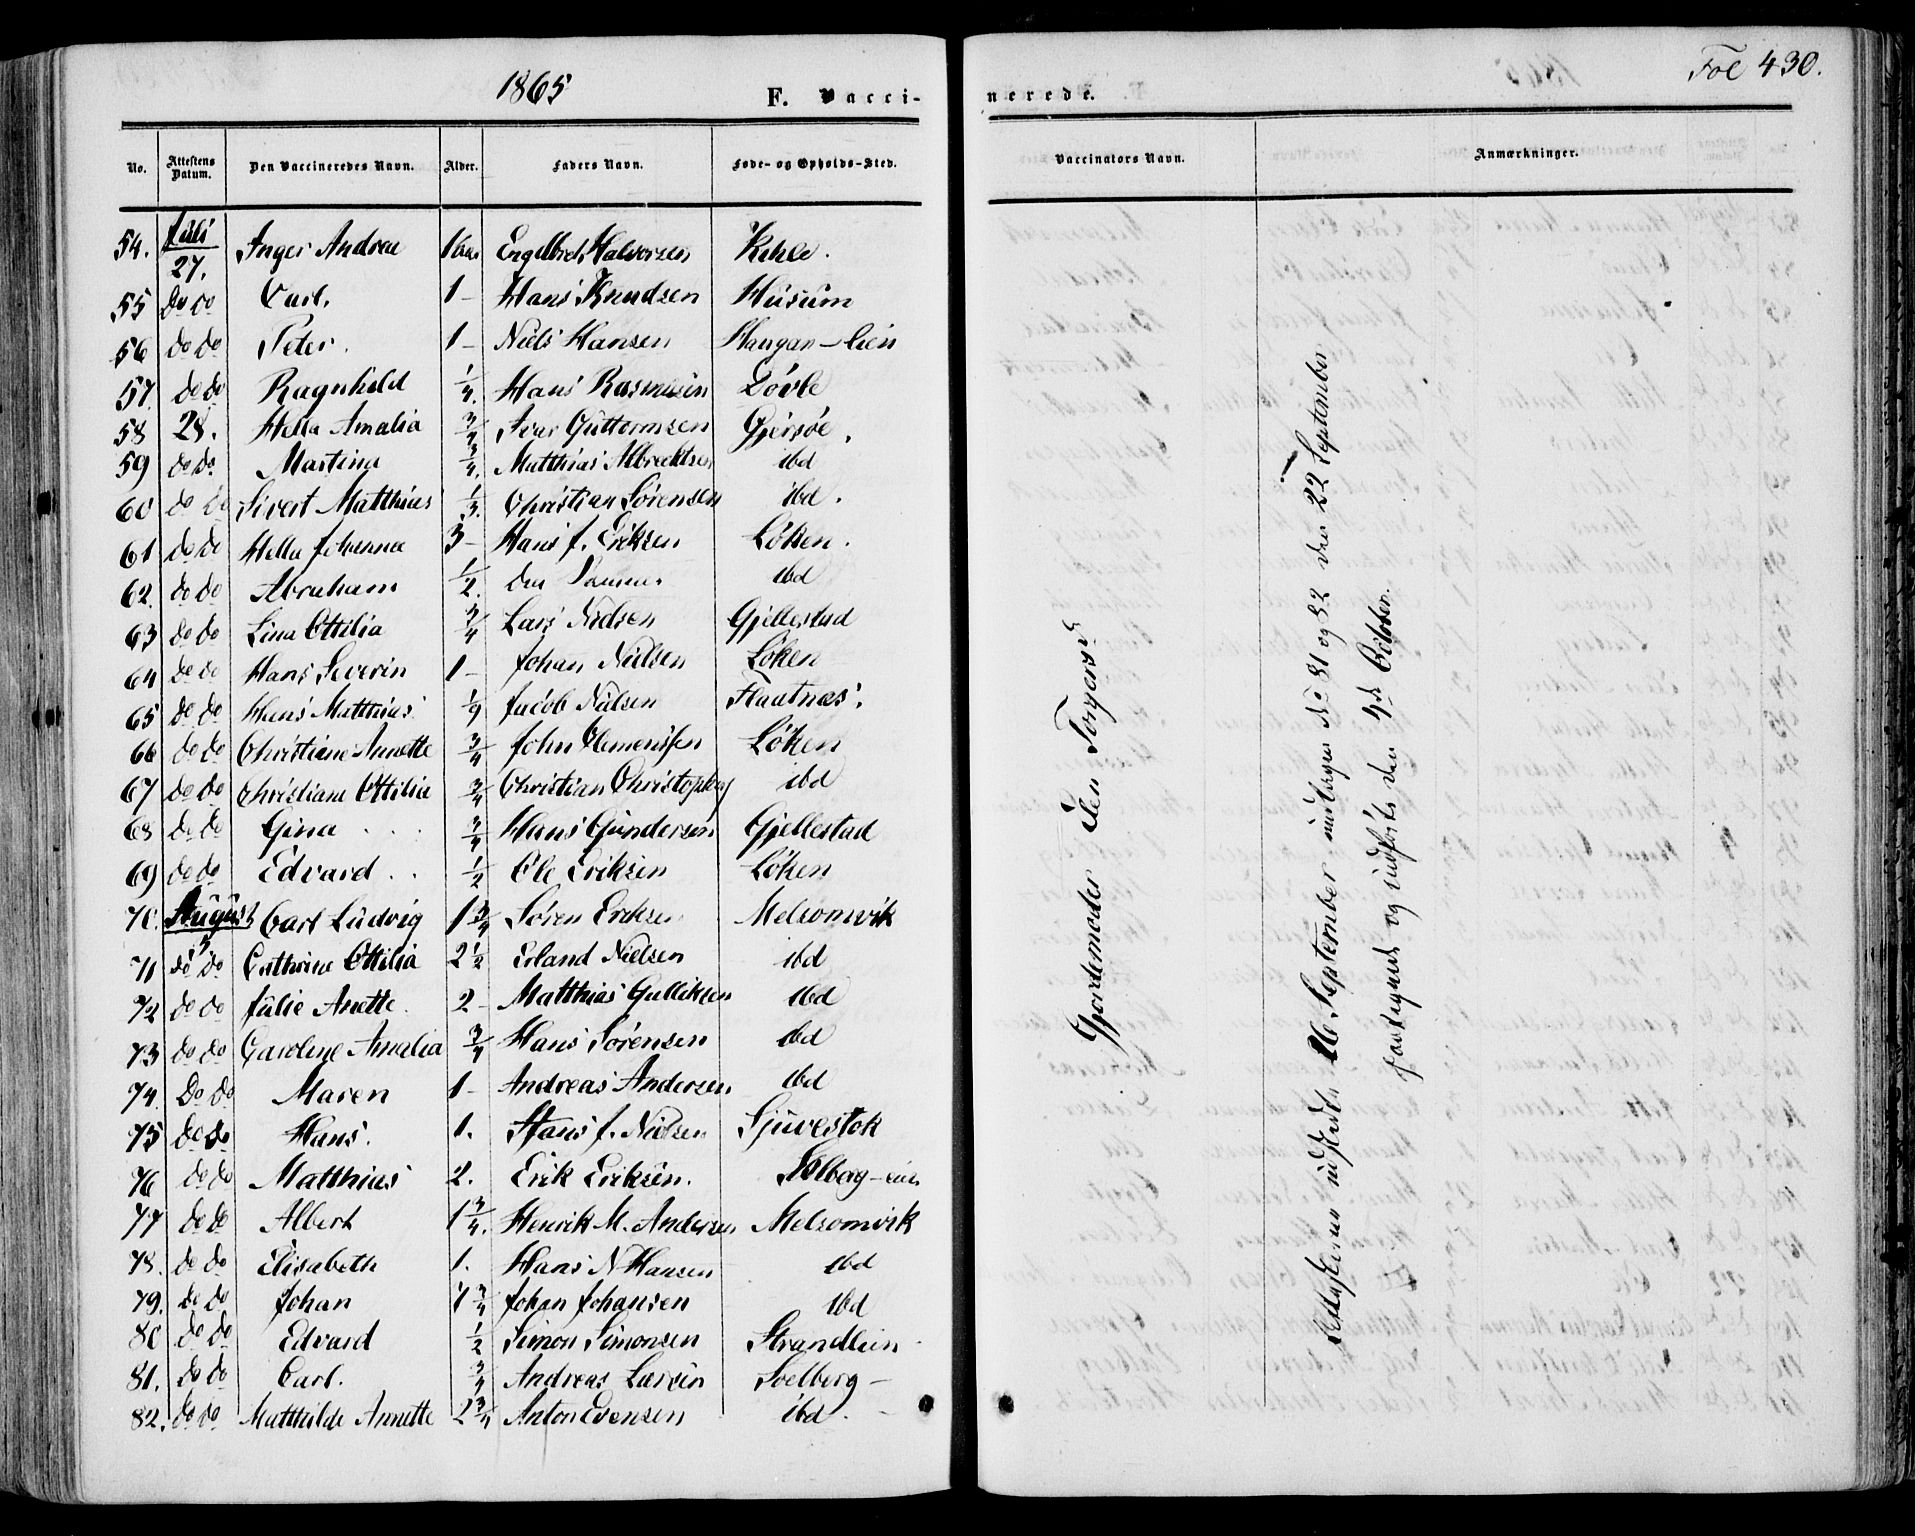 1865
F. Vacci-
nerede.
Fol 430.
No. Attestens Datum. Den Vaccineredes Navn. Alder. Faders Navn. Føde- og Opholds-Sted. Vaccinators Navn. Anmærkninger.
54. Juli 27. Inger Andrea 1 Engelbret Halvorsen
55 do do Carl. 1 - Hans Knudsen Husum
56 do do Peter. 1 - Niels Hansen Haugan-eien
57. do do Ragnhild 1/4. Hans Rasmussen Løvle
58 28. Hella Amalia 3/4 Ivar Guttormsen Gjersøe.
59 do do Martina 3/4. Matthias Albrechtsen ibd
60 do do Sivert Matthias 1/3. Christian Sørensen ibd.
61 do do Hella Johanna 3 - Hans J. Eriksen Løken.
62. do do Abraham 1/2. den Samme. ibd
63 do do Lina Ottilia 3/4 Lars Nielsen Gjellestad
64 do do Hans Severin 1 - Johan Nielsen Løken
65 do do Hans Matthias 1/9 Jacob Nielsen
66 do do Christiane Annette 3/4 John Clemensen Løken
67 do do Christiane Ottilia 3/4 Christian Christophers ibd
68 do do Gina 3/4 Hans Gundersen Gjellestad
69 do do Edvard 1/2 Ole Eriksen Løken
70. August 5 Carl Ludvig 1 3/4 Søren Eriksen Melsomvik
71 do do Cathrine Ottilia 2 1/2 Erland Nielsen ibd
72 do do Julie Anette. 2 - Matthias Gulliksen ibd
73 do do Caroline Amalia 3/4 Hans Sørensen ibd
74. do do Maren 1 - Andreas Andersen ibd
75 do do Hans. 1. Hans J. Nielsen Sjuestok
76 do do Matthias 2. Erik Eriksen. Solberg-eie
77 do do Albert 1 3/4. Henrik M. Andersen Melsomvik
78. do do Elisabeth 1. Hans N Hansen ibd
79. do do Johan 1 3/4 Johan Johansen ibd
80 do do Edvard 1/2 Simon Simonsen Strandeien
81. do do Carl. 3/4 Andreas Larsen Soelberg -
82. do do Matthilde Annette 2 3/4 Anton Evensen ibd.
Gjordemoder Elen Torgersd
Attesterne udstedte 26 September undtagen No 81 og 82 den 22 September
fortegnet og indført den 4de October.